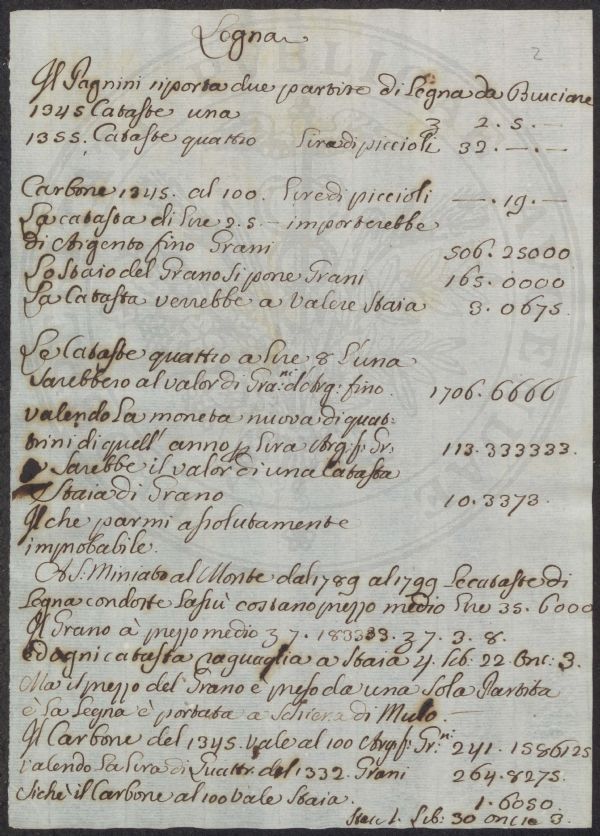 Legna
2
Il Pagnini riporta due partite di Legna da Bruciare
1345 Cataste una 3 2. 5. —
1355. Cataste quattro Lire di piccioli 32. — . —
Carbone 1345. al 100. Lire di piccioli — . 19. —
La catasta di Lire 2. 5. — importerebbe
di Argento fino Grani 506. 25000
Lo Staio del Grano si pone Grani 165. 0000
La Catasta verrebbe a valere Staia 3. 0675.
Le Cataste quattro a Lire 8 l'una
Sarebbero al valor di Gra:ni d'Arg: fino. 1706. 6666
valendo la moneta nuova di quat-
trini di quell' anno p Lira Arg: f: Gr: 113. 333333.
Sarebbe il valor di una Catasta
Staia di Grano 10. 3373.
Il che parmi assolutamente
improbabile.
A S: Miniato al Monte dal 1789 al 1799 Le cataste di
Legna condotte lassù costano prezzo medio Lire 35. 6000
Il Grano à prezzo medio 3 7. 183333. 3 7. 3. 8.
ed ogni catasta ragguaglia a Staia 4. Lib: 22 Onc: 3.
Ma il prezzo del Grano è preso da una sola Partita
e la Legna è portata a Schiena di Mulo. —
Il Carbone del 1345. vale al 100 Arg: f: Gr:ni 241. 1586125
valendo la Lira di Quattr: del 1332. Grani 264. 8275.
Sichè il Carbone al 100 vale Staia. 1. 6050.
Staia 1. Lib: 30 oncie 3.